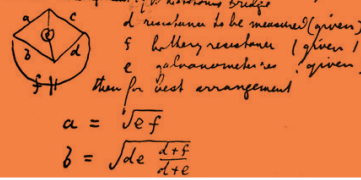 Bridge
a c
d resistance to be measured (given)
b d
f battery resistance (given)
f
e galvanometer res (given)
then for best arrangement
a = √ef
b = √de d+f/d+e